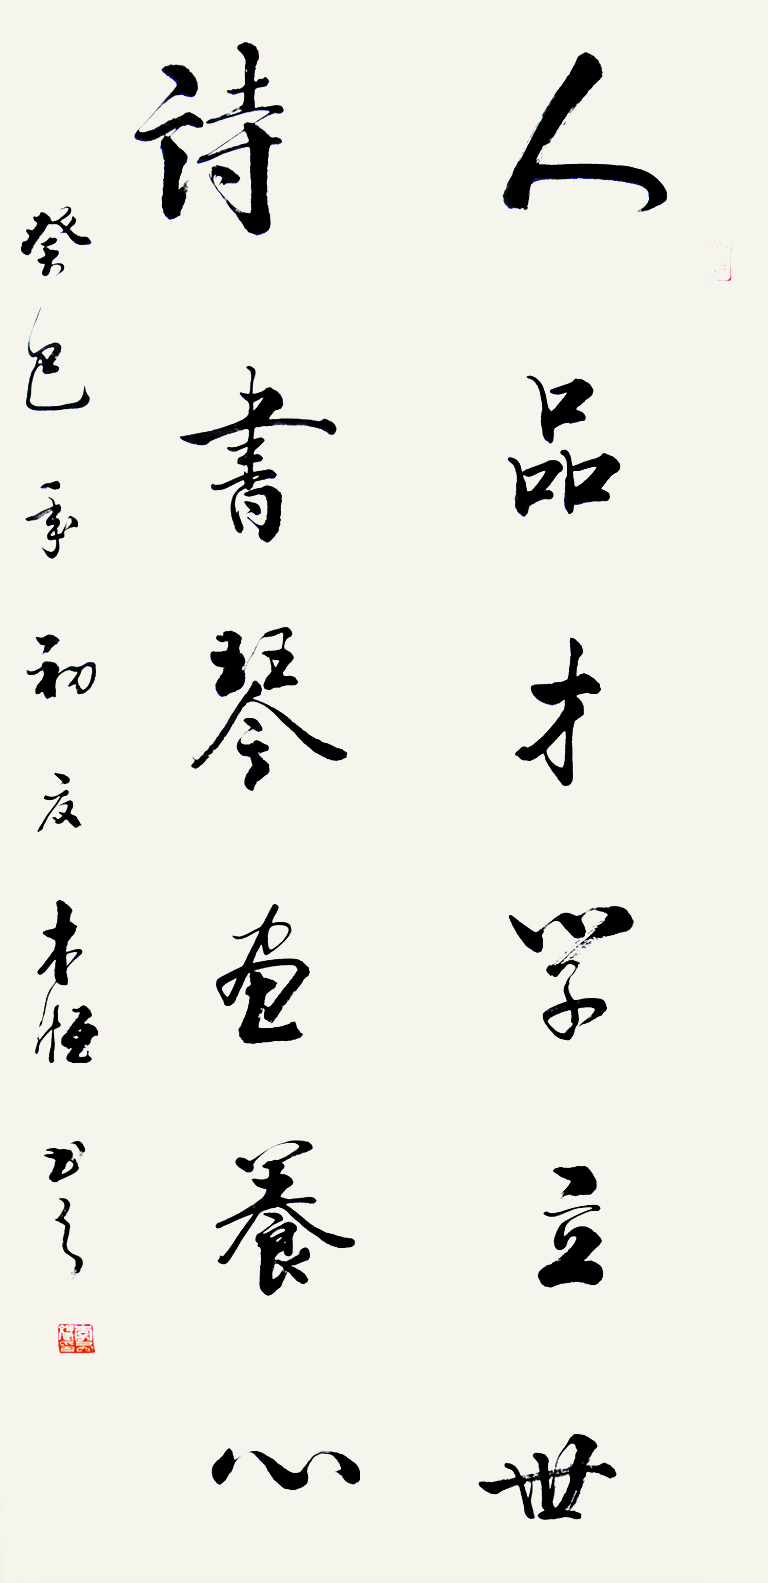 人品才学立世
詩書琴画養心
癸巳年初夏木恒书